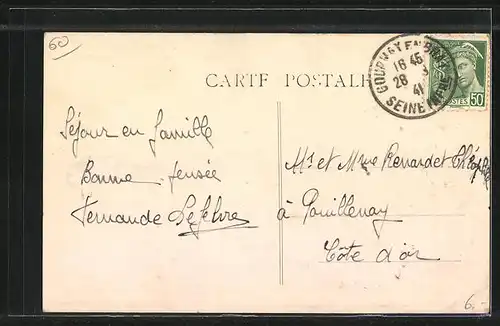 60
GOURNAY EN BRAY
16 45
28
41
SEINE INFRE
POSTES
50
CARTE POSTALE
Séjour en famille
Bonne pensée
Fernande Lefebvre
Mr et Mme Renardet
à Pouillenay
Côte d'or
6.-